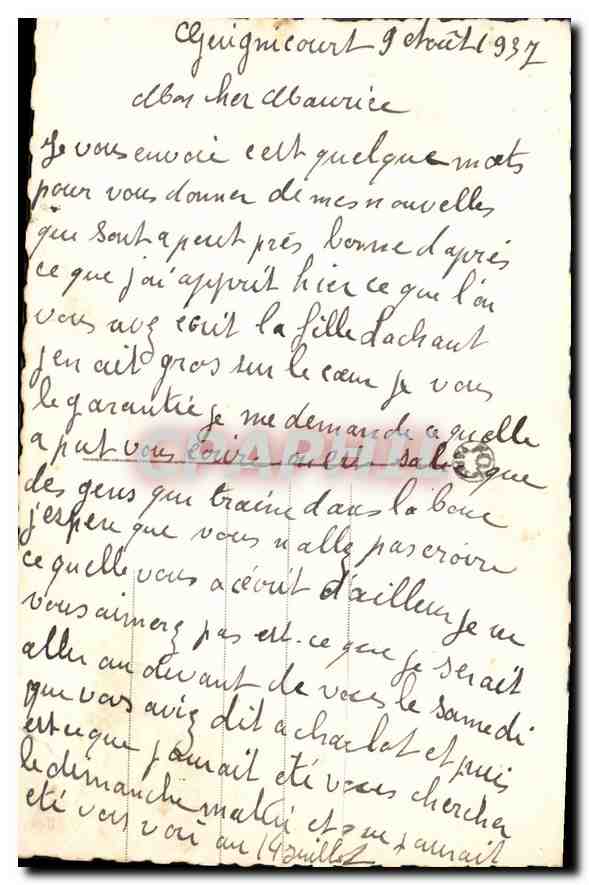 Guignicourt 9 Août 1937
Mon cher Maurice
Je vous envoie cest quelque mots
pour vous donner de mes nouvelles
qui sont a peut prés bonne d'aprés
ce que j'ai apprit hier ce que l'on
vous avez ecrit la fille dachant
jen ait gros sur le cœur je vous
le garantie je me demande ce quelle
a put vous écrire cest sale que
des gens qui traine dans la boue
j'espere que vous n allez pas croire
ce quelle vous a écrit d'ailleur je ne
vous aimerez pas est-ce que je serait
aller au devant de vous le samedi
que vous aviz dit a charlot et puis
est ce que j'aurait eté vous chercher
le dimanche matin et j'aurait
eté vous voir au 14 Juillet
CPAPHIL